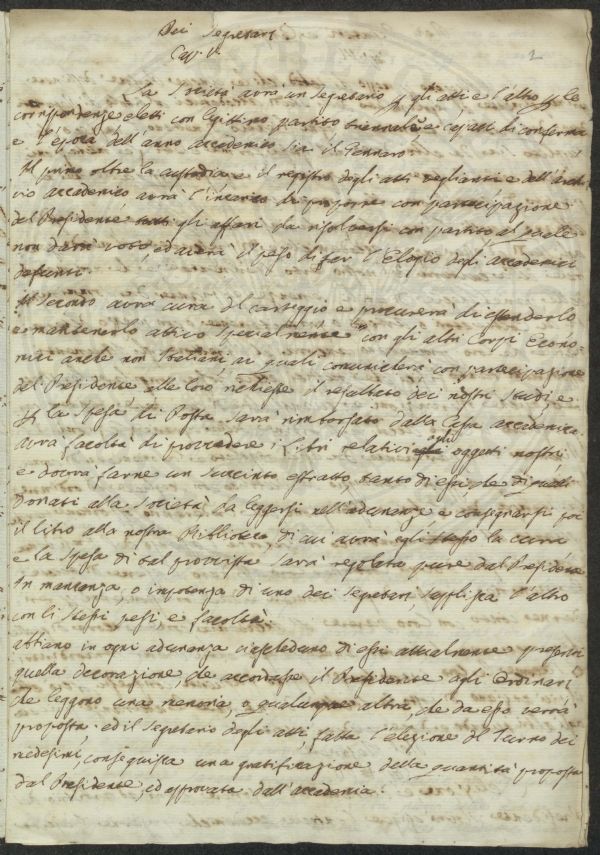 Dei Segretarj
Cap. V.
2
La Società avrà un Segretario p gli atti e l'altro p le
corrispondenze eletti con legittimo partito triennale e capaci di conferma
e l'epoca dell'anno accademico sia il Gennaro
Il primo oltre la custodia e il registro degli atti veglianti e dell'archi
vio accademico avrà l'incarico di proporre con partecipazione
del Presidente tutti gli affari da risolversi con partito al quale
non darà voto, ed avrà il peso di far l'Elogio degli accademici
defunti.
Il Secondo avrà cura del carteggio e procurerà di estenderlo
e mantenerlo attivo specialmente con gli altri Corpi Econo
mici anche non Italiani, ai quali comunicherà con partecipazione
del Presidente alle loro richieste il resultato dei nostri Studj, e
p la spesa di Posta sarà rimborsato dalla Cassa accademica.
avrà facoltà di provvedere i libri relativi agli oggetti nostri
e dovrà farne un succinto estratto, tanto di essi, che di quelli
donati alla Società da leggersi nell'adunanze e consegnarsi poi
il libro alla nostra Biblioteca, di cui avrà egli stesso la cura
e la spesa di tal provvista sarà regolata pure dal Presidente
In mancanza, o impotenza di uno dei Segretarj, supplisca l'altro
con li stessi pesi, e facoltà
abbiano in ogni adunanza ciascheduno di essi attualmente presenti
quella decorazione, che accordasse il Presidente agli Ordinarj
che leggono una memoria, o qualunque altra, che da esso verrà
proposta; ed il Segretario degli atti, fatta l'elezione del Turno dei
medesimi, conseguisca una gratificazione della quantità proposta
dal Presidente, ed approvata dall'accademia.